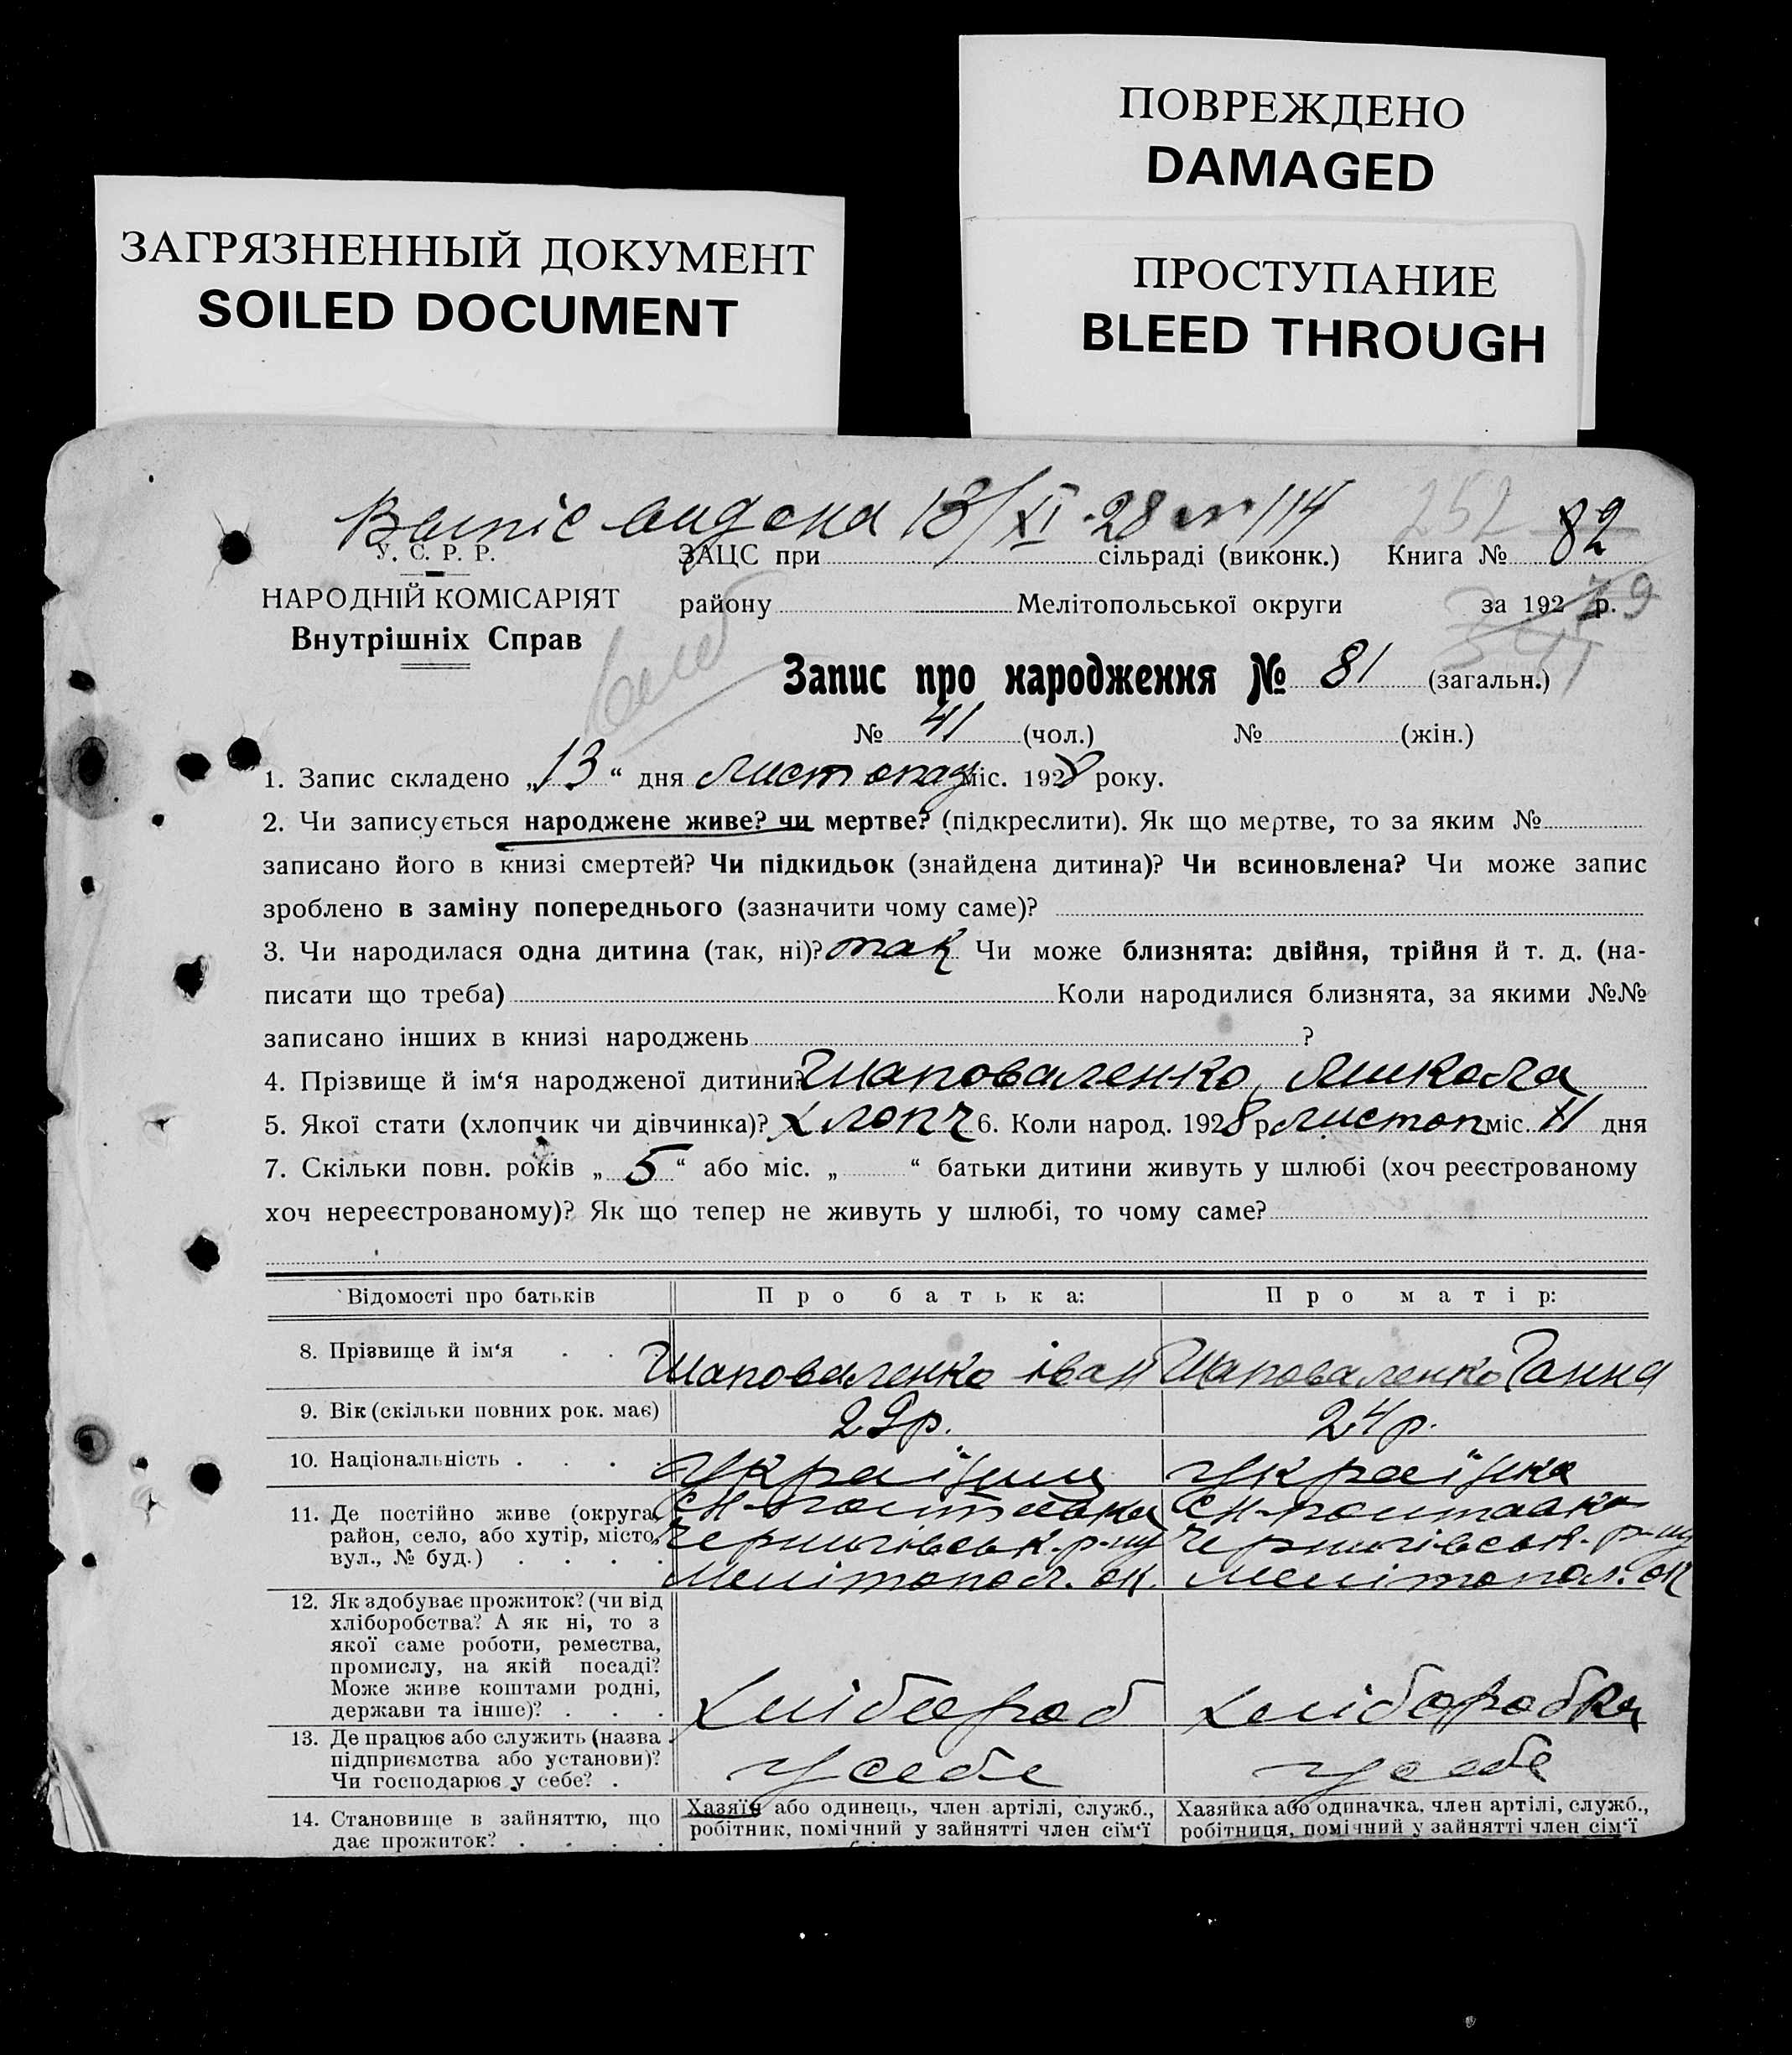 ПОВРЕЖДЕНО
DAMAGED
ЗАГРЯЗНЕННЫЙ ДОКУМЕНТ
SOILED DOCUMENT
ПРОСТУПАНИЕ
BLEED THROUGH
видана 13/XI-28 № 114 252 82
У. С. Р. Р.
НАРОДНІЙ КОМІСАРІЯТ
Внутрішніх Справ
ЗАЦС при сільраді (виконк.) Книга №
району Мелітопольської округи за 192 р.
Запис про народження № 81 (загальн.)
№ 41 (чол.) № (жін.)
1. Запис складено „13“ дня листопад міс. 1928 року.
2. Чи записується народжене живе? чи мертве? (підкреслити). Як що мертве, то за яким №
записано його в книзі смертей? Чи підкидьок (знайдена дитина)? Чи всиновлена? Чи може запис
зроблено в заміну попереднього (зазначити чому саме)?
3. Чи народилася одна дитина (так, ні)? так Чи може близнята: двійня, трійня й т. д. (на-
писати що треба) Коли народилися близнята, за якими №№
записано інших в книзі народжень ?
4. Прізвище й ім‘я народженої дитини? Шаповаленко, Микола
5. Якої стати (хлопчик чи дівчинка)? хлопч 6. Коли народ. 1928 р. листоп міс. 11 дня
7. Скільки повн. років „5“ або міс. „ “ батьки дитини живуть у шлюбі (хоч реєстрованому
хоч нереєстрованому)? Як що тепер не живуть у шлюбі, то чому саме?
Відомості про батьків Про батька: Про матір:
8. Прізвище й ім‘я . . . Шаповаленко Іван Шаповаленко Ганна
9. Вік (скільки повних рок. має) 29 р. 24 р.
10. Національність . . . . Українц Українка
11. Де постійно живе (округа,
район, село, або хутір, місто,
вул., № буд.) . . . .
Чернигівськ. р-ну Чернигівськ. р-ну
Мелітопол. ок. Мелітопол. ок
12. Як здобуває прожиток? (чи від
хліборобства? А як ні, то з
якої саме роботи, ремества,
промислу, на якій посаді?
Може живе коштами родні,
держави та інше)? . . . Хлібороб Хліборобка
13. Де працює або служить (назва
підприємства або установи)?
Чи господарює у себе? . у себе у себе
14. Становище в зайняттю, що
дає прожиток? . . . .
Хазяїн або одинець, член артілі, служб.,
робітник, помічний у зайнятті член сім‘ї
Хазяйка або одиначка, член артілі, служб.,
робітниця, помічний у зайнятті член сім‘ї